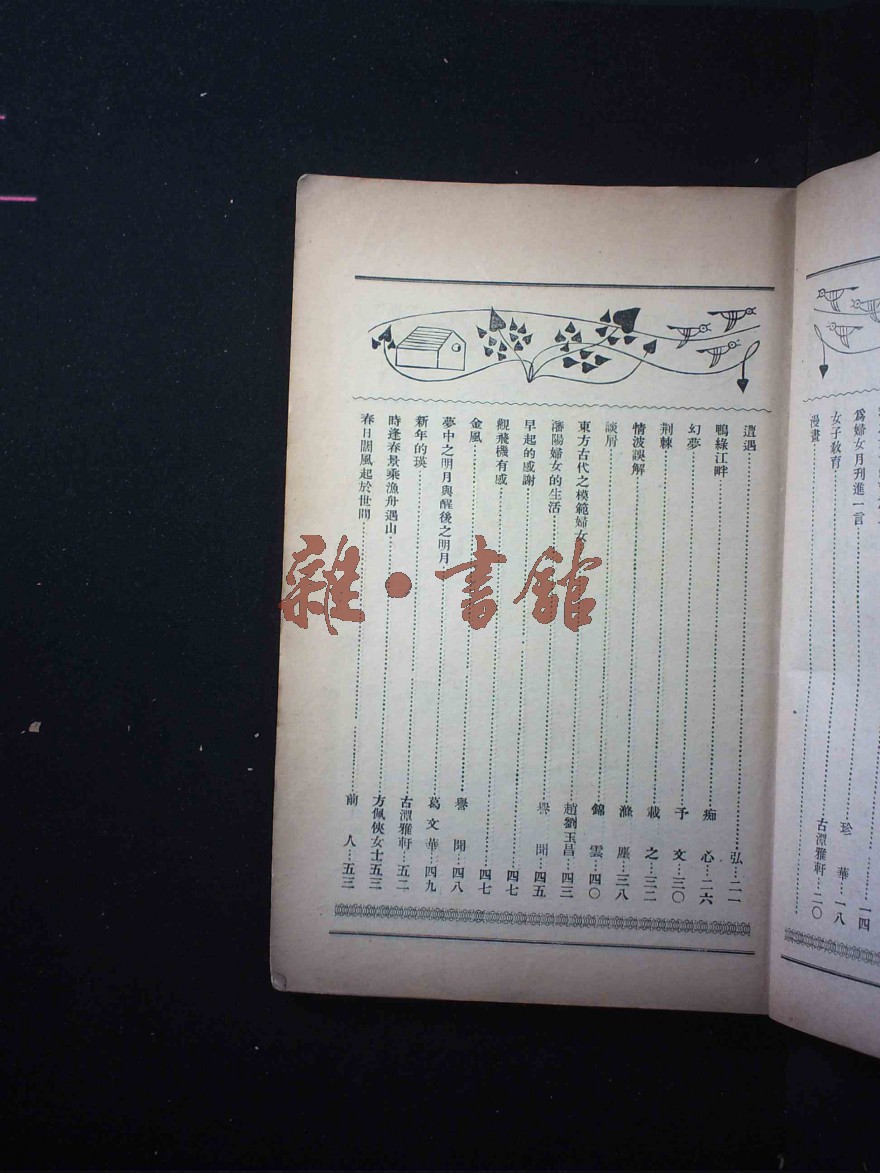 爲婦女月刋進一言
一四
女子敎育 珍華 一八
漫畫 古潭雅軒 二〇
遭遇 弘 二一
鴨綠江畔 痴心 二六
幻夢 予文 三〇
荆棘 裁之 三二
情波誤解 滌塵 三八
談屑 錦雲 四〇
東方古代之模範婦女 趙劉玉昌 四三
瀋陽婦女的生活 譽聞 四五
早起的感謝 四七
觀飛機有感 四七
金風 譽聞 四八
夢中之明月與醒後之明月 葛文華 四九
新年的瑛 古潭雅軒 五二
時逢春景乘漁舟遇山 方佩俠女士 五三
春日閣風起於世間 前人 五三
雜·書館